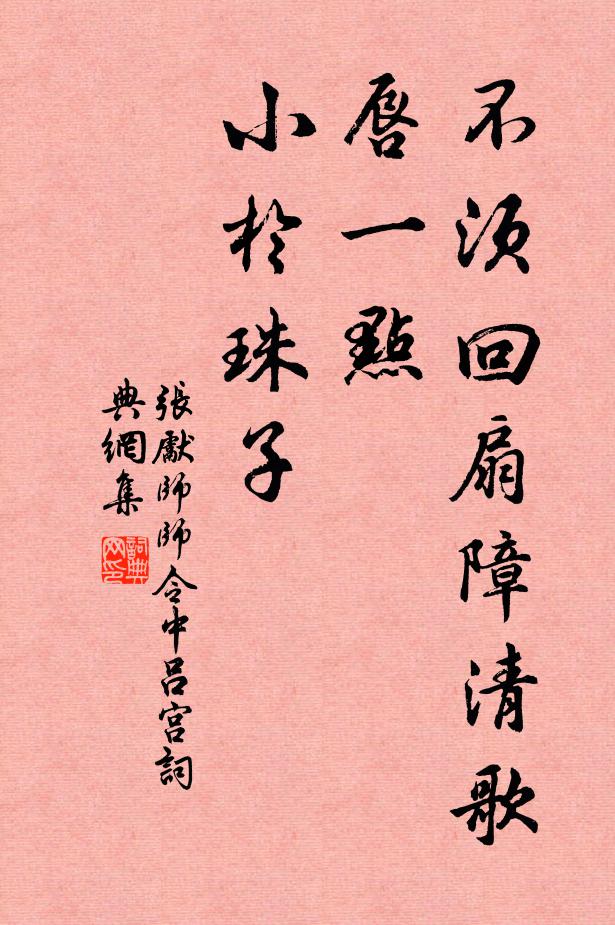 不須回扇障清歌
唇一點
小於珠子
張獻師師令中吕宫詞
典網集
詞典
网印